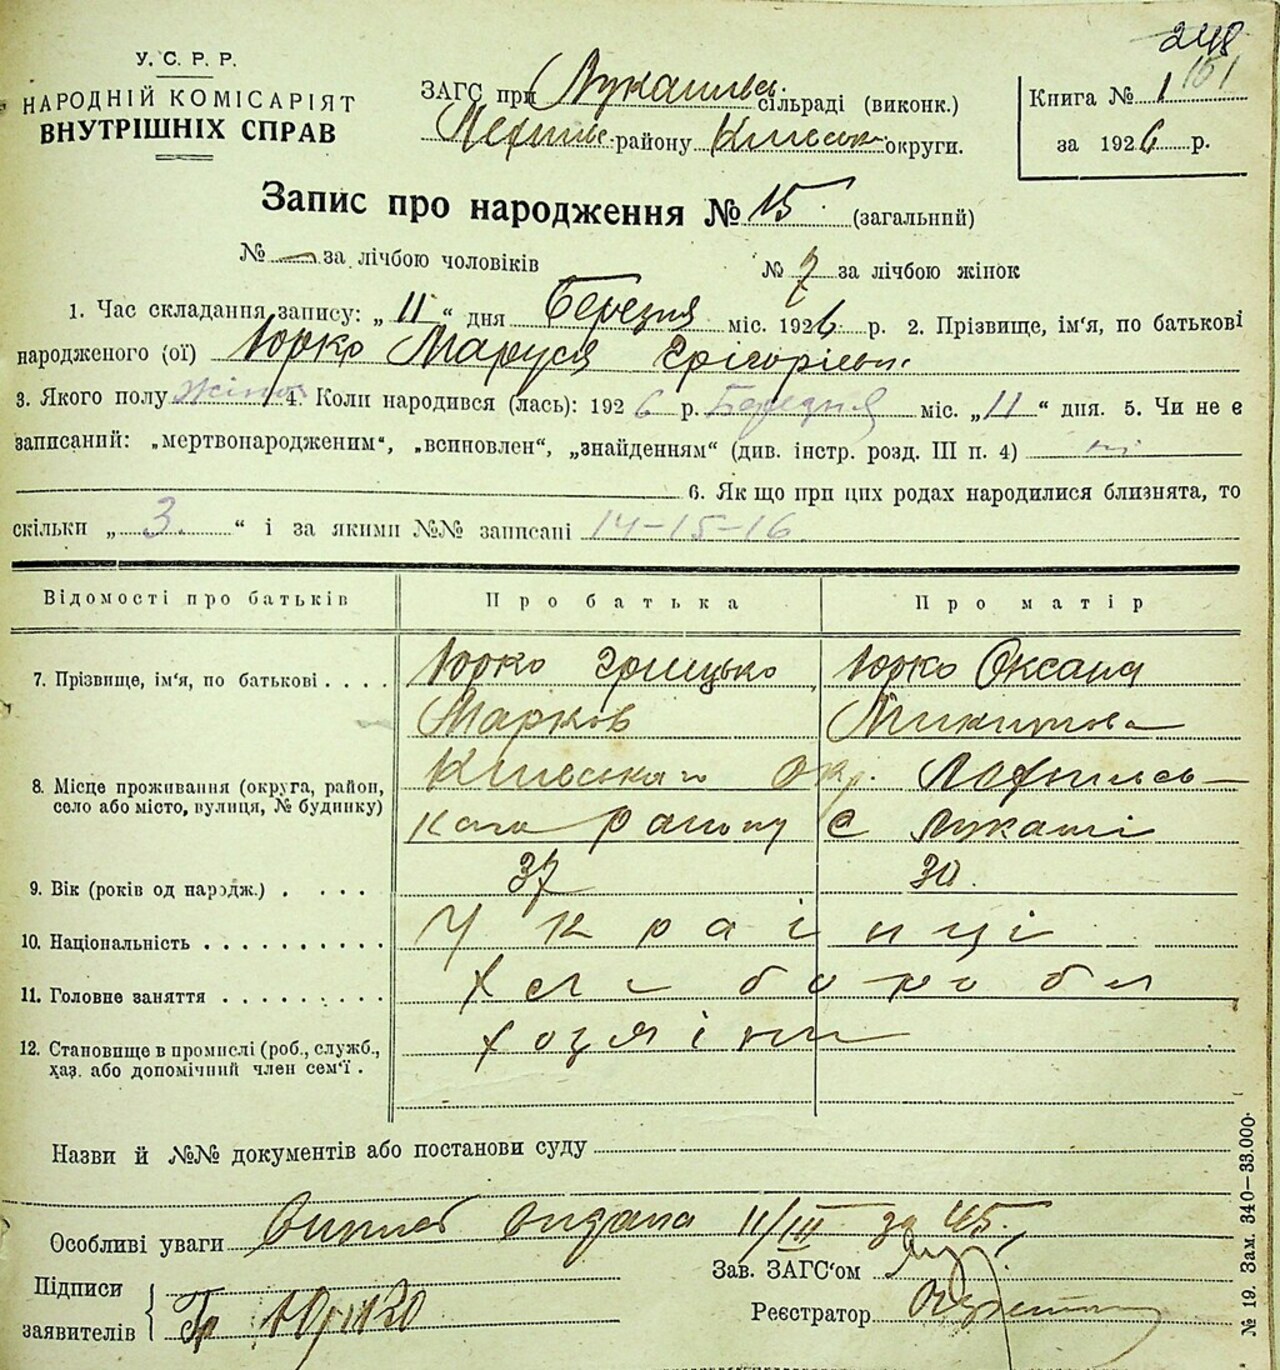 248
151
У. С. Р. Р.
НАРОДНІЙ КОМІСАРІЯТ
ВНУТРІШНІХ СПРАВ
ЗАГС при Лукашівсь. сільраді (виконк.)
району Київськ. округи.
Книга № 1
за 1926 р.
Запис про народження № 15. (загальний)
№ — за лічбою чоловіків
№ 7 за лічбою жінок
1. Час складання запису: „ 11 “ дня Березня міс. 1926 р. 2. Прізвище, ім‘я, по батькові
народженого (ої) Юрко Маруся Грігорівн.
3. Якого полу жіноч 4. Коли народився (лась): 1926 р. Березня міс. „ 11 “ дня. 5. Чи не є
записаний: „мертвонародженим“, „всиновлен“, „знайденням“ (див. інстр. розд. III п. 4) ні
6. Як що при цих родах народилися близнята, то
скільки „ 3. “ і за якими №№ записані 14-15-16
Відомості про батьків Про батька Про матір
7. Прізвище, ім‘я, по батькові . . . . Юрко Грицько Юрко Оксана
Марков Микитова
8. Місце проживання (округа, район, Київськаго Окр.
село або місто, вулиця, № будинку) кого району с Лукаші
9. Вік (років од народж.) . . . . 37 30.
10. Національність . . . . . . . . . . Українці
11. Головне заняття . . . . . . . . . Хлібороби
12. Становище в промислі (роб., служб., хозяіни
хаз. або допомічний член сем‘ї .
Назви й №№ документів або постанови суду
Особливі уваги видана 11/III за 45.
Підписи
заявителів Гр Юрко
Зав. ЗАГС‘ом
Реєстратор
№ 19. Зам. 340—33.000.